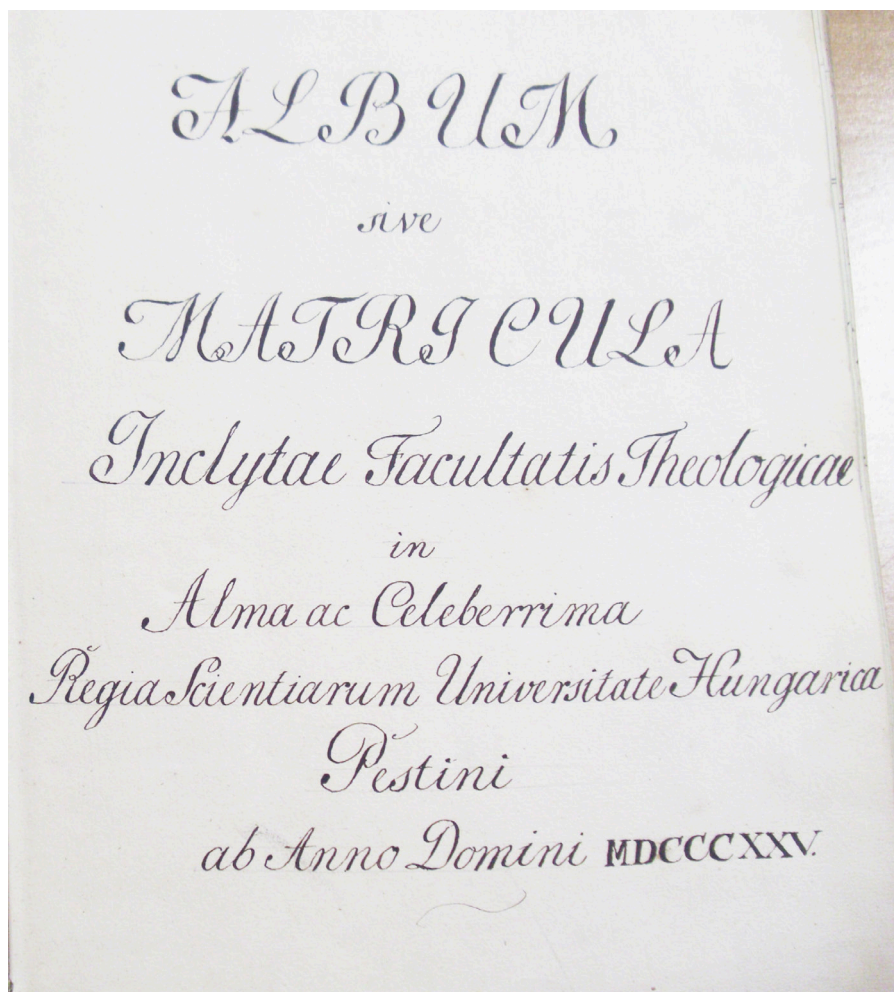 ALBUM
sive
MATRICULA
Inclytae Facultatis Theologicae
in
Alma ac Celeberrima
Regia Scientiarum Universitate Hungarica
Pestini
ab Anno Domini MDCCCXXV.